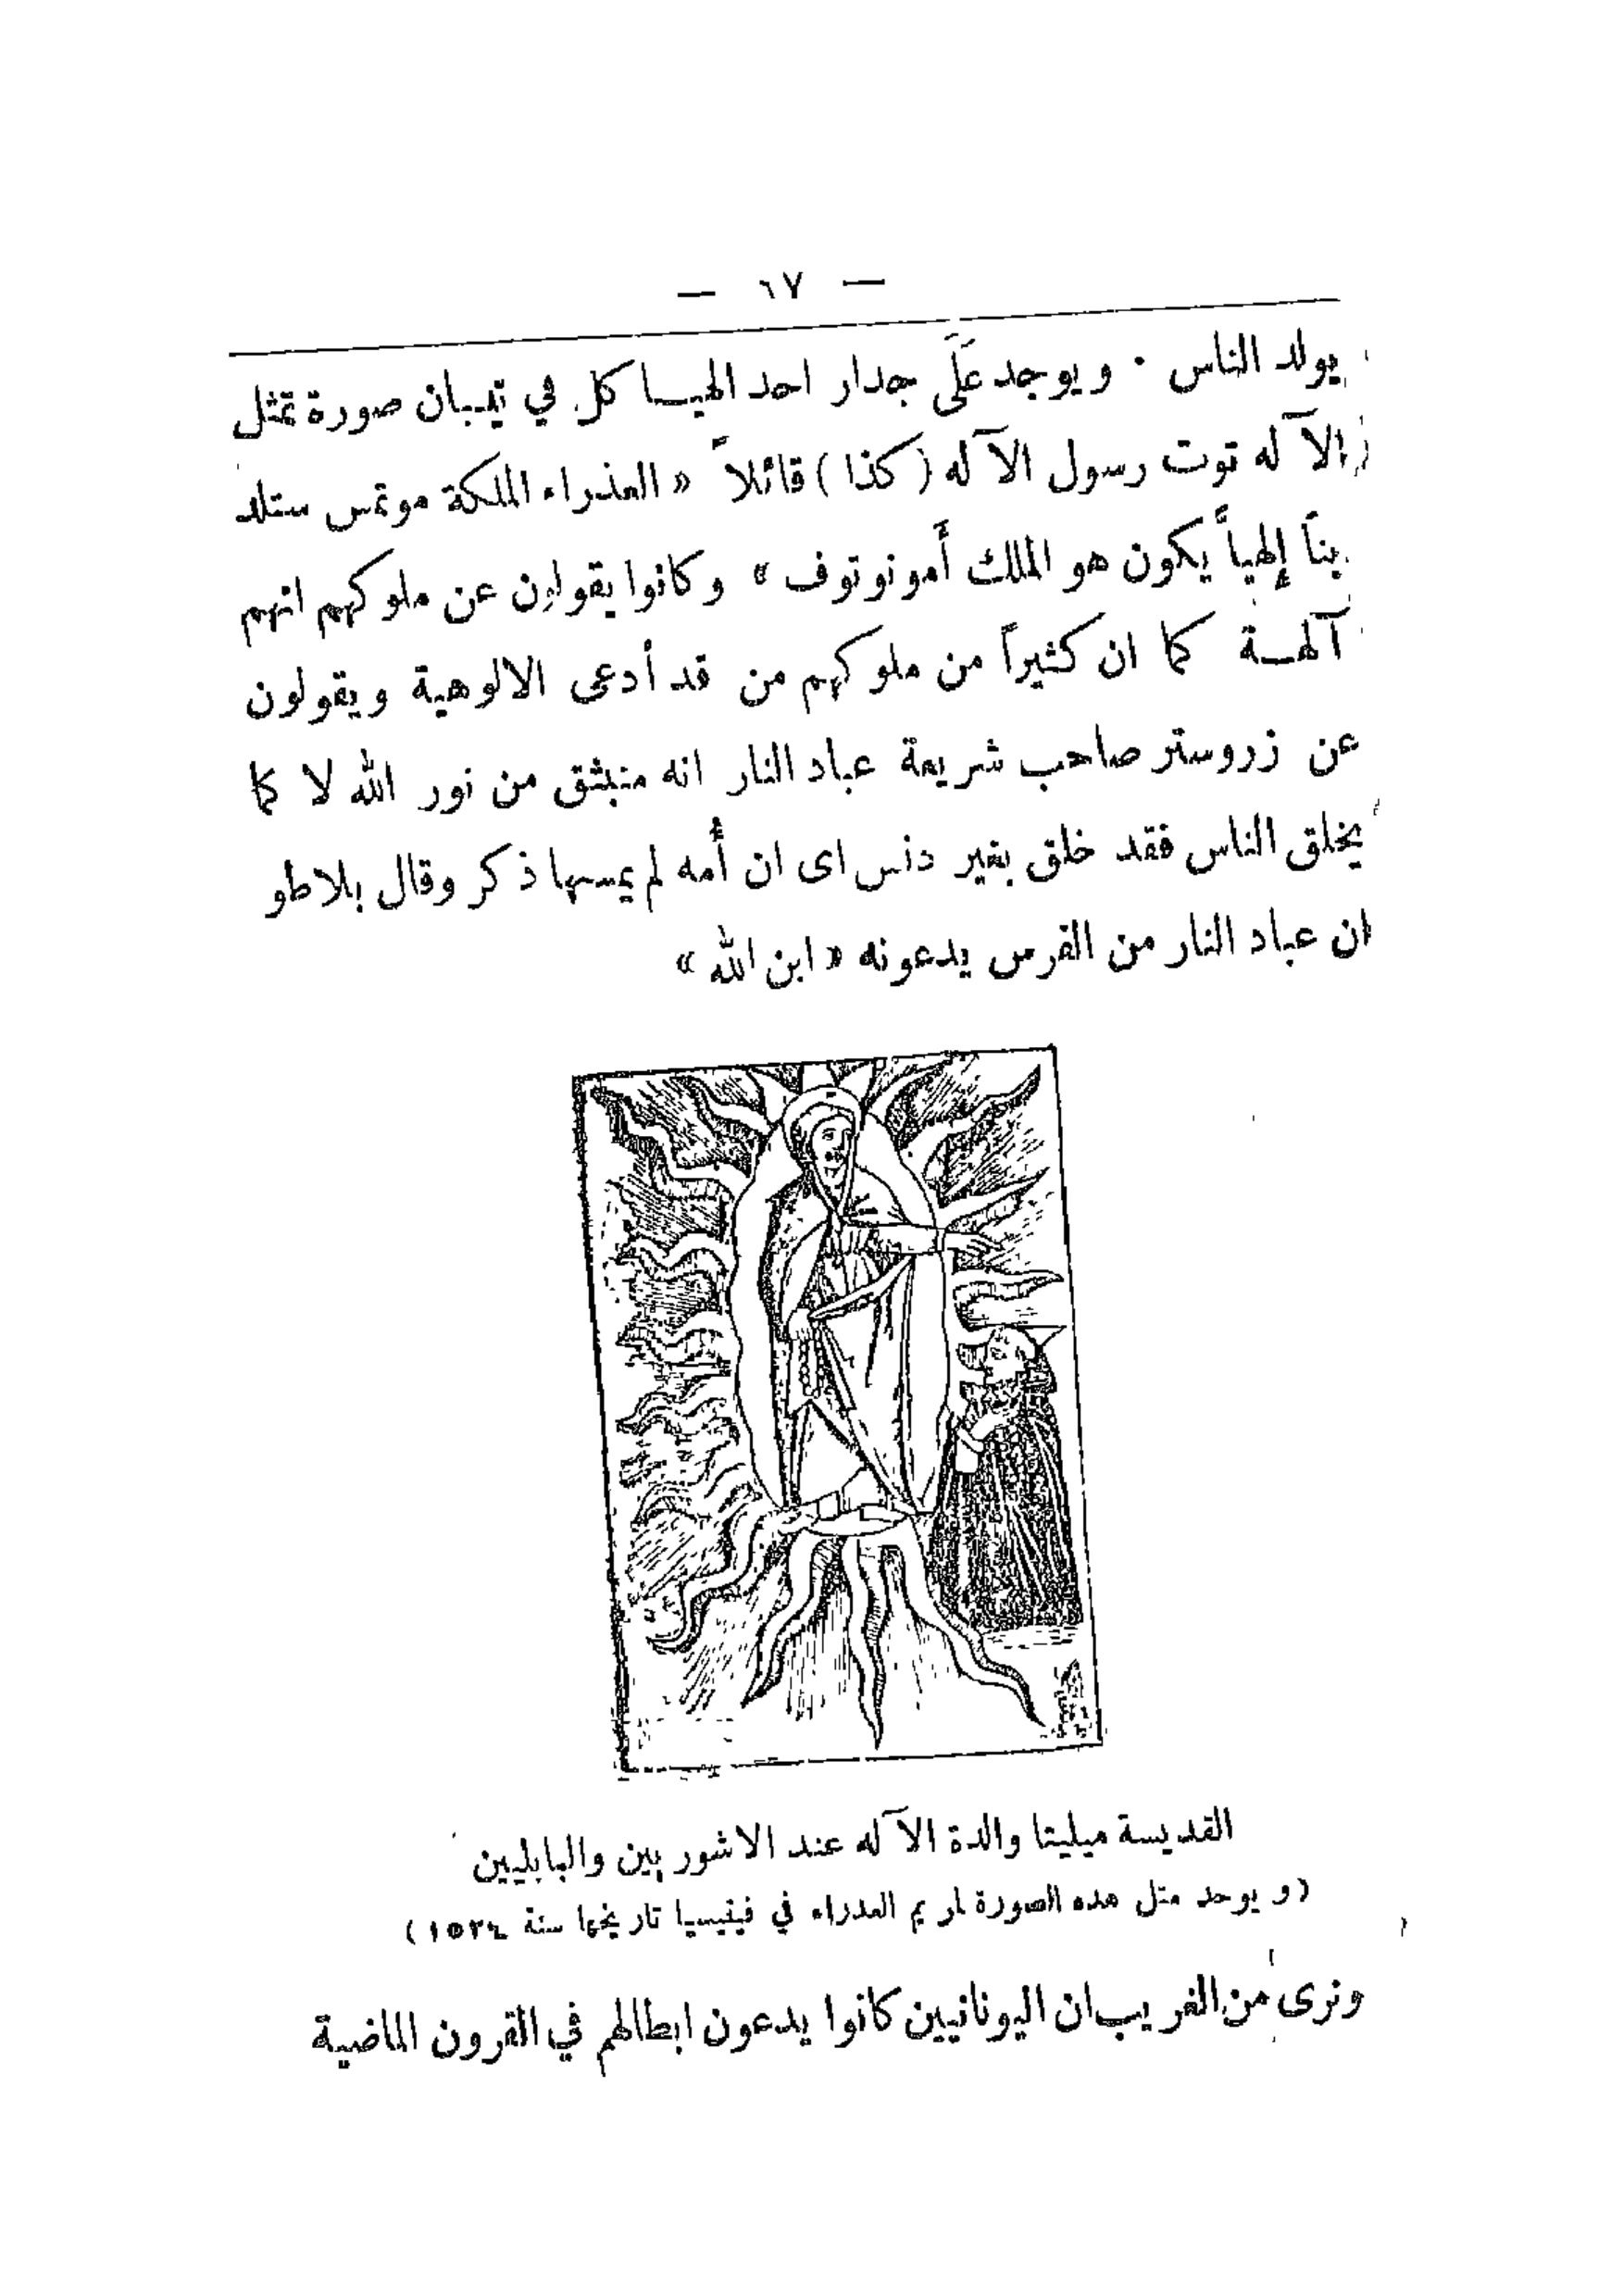 — ٦٧ —
يولد الناس . ويوجد عَلَى جدار احد الهيـاكل في تيبـان صورة تمثل
الآله توت رسول الآله ( كذا ) قائلاً « العذراء الملكة موتمس ستلد
بناً إلهياً يكون هو الملك أمونوتوف » وكانوا يقولون عن ملوكهم انهم
آلهـة كما ان كثيراً من ملوكهم من قد أدعى الالوهية ويقولون
عن زروستر صاحب شريعة عباد النار انه منبثق من نور الله لا كما
يخلق الناس فقد خلق بغير دنس اى ان أُمه لم يمسها ذكر وقال بلاطو
ان عباد النار من الفرس يدعونه « ابن الله »
القديسة ميليتا والدة الآله عند الاشوريين والبابليين
( ويوحد متل هده الصورة لمريم العدراء في فينيسيا تاريخها سنة ١٥٢٤ )
ونرى من الغريب ان اليونانيين كانوا يدعون ابطالهم في القرون الماضية